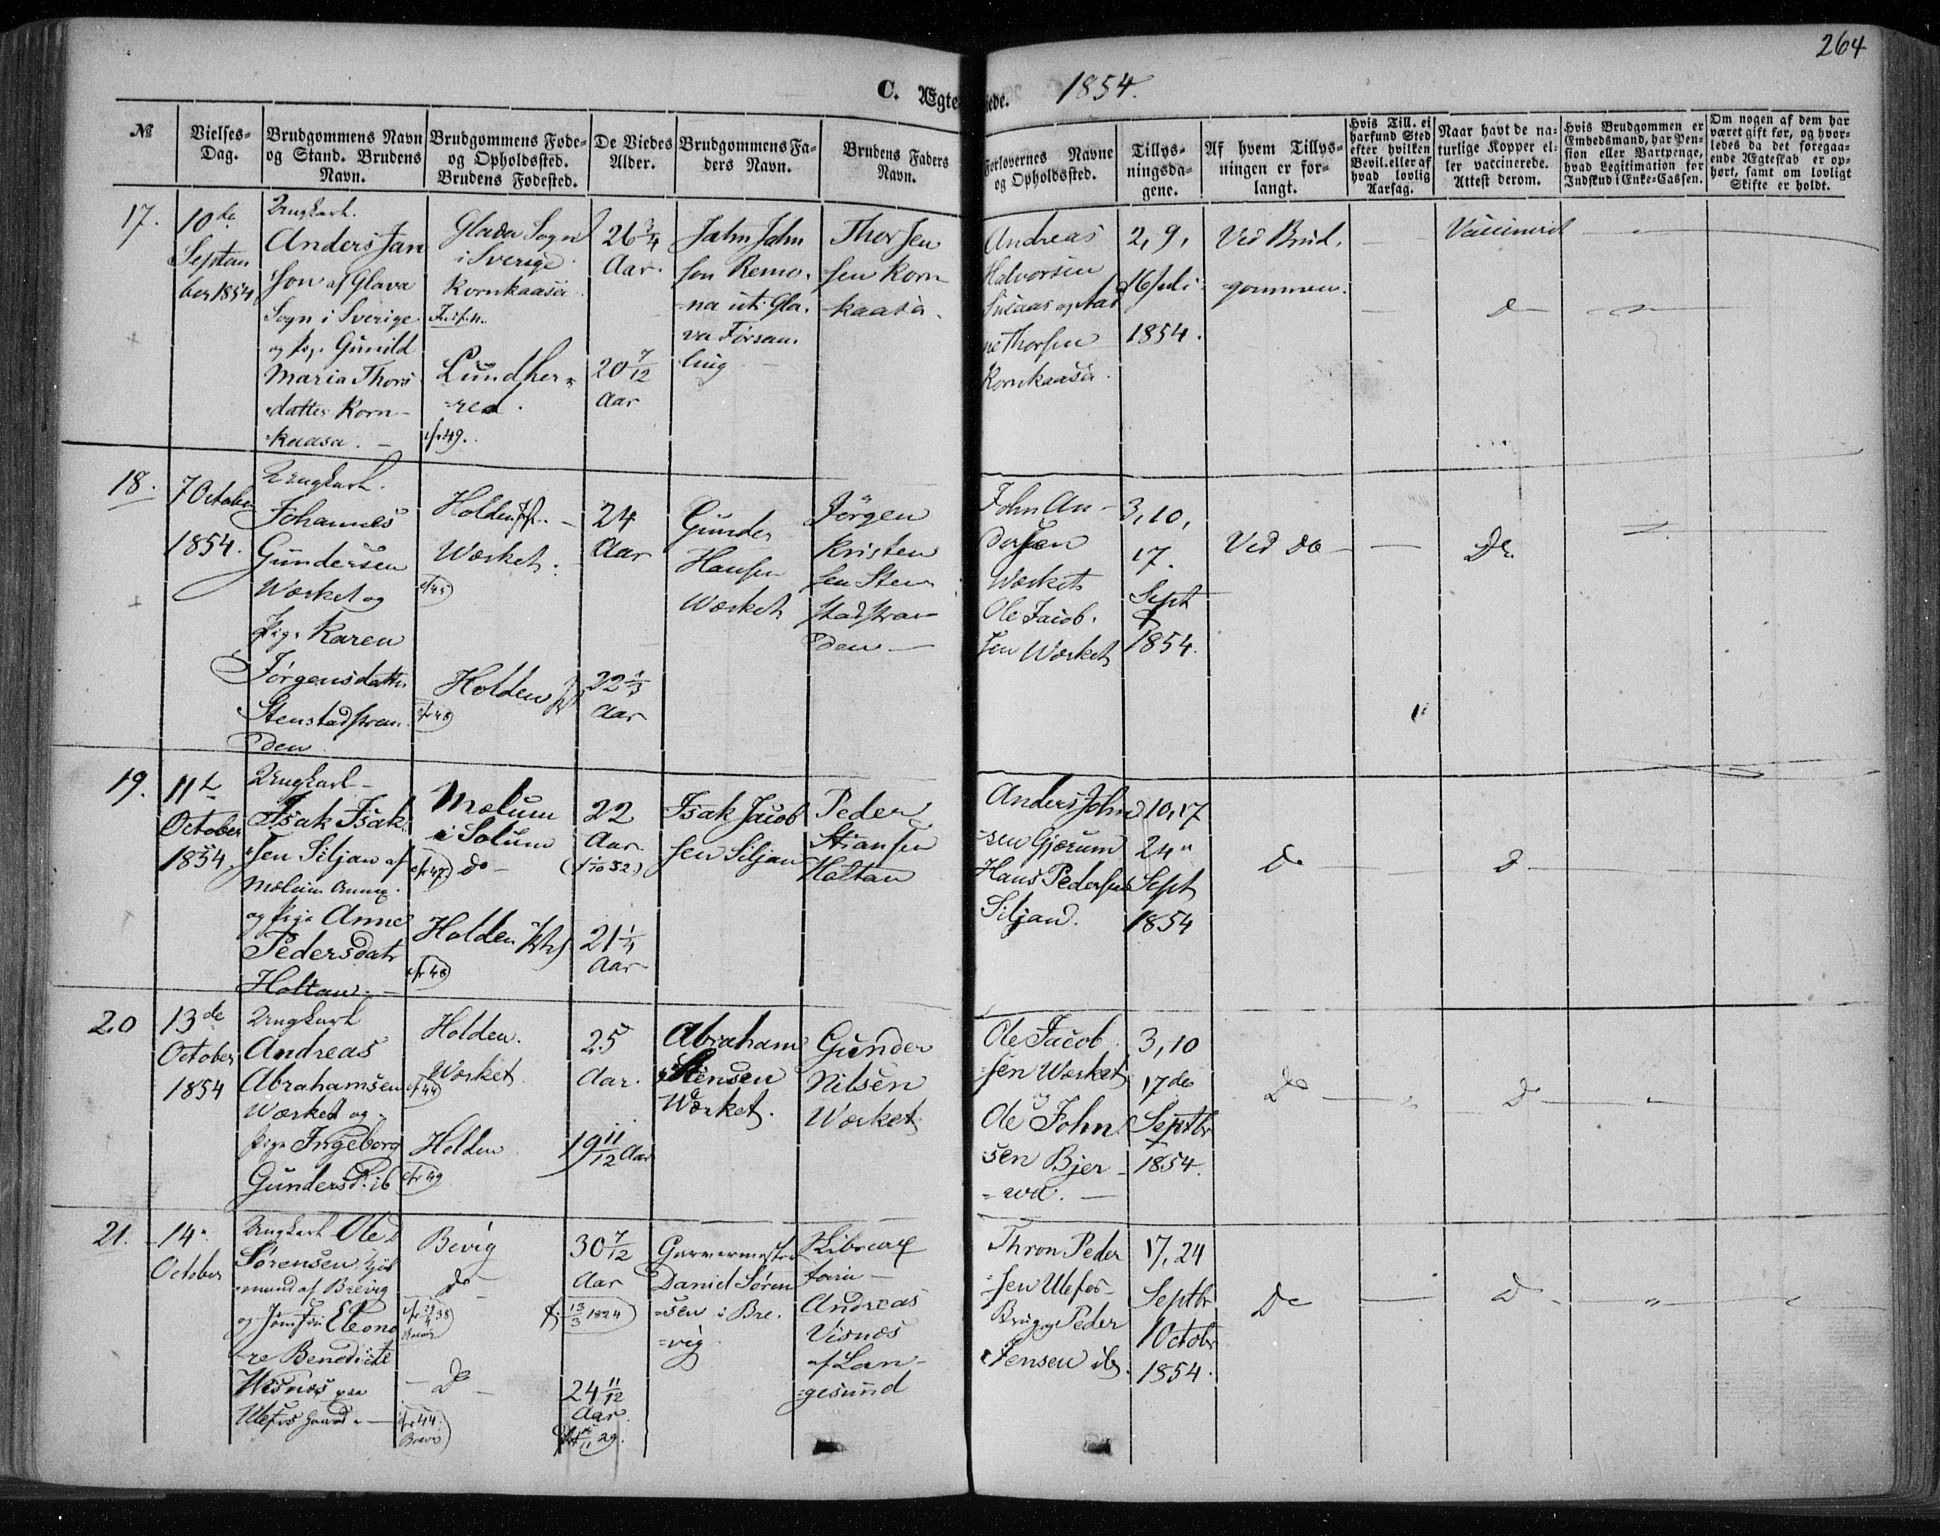 264
C. Ægteviede.
1854.
№
Vielses-
Dag.
Brudgommens Navn
og Stand. Brudens
Navn.
Brudgommens Føde-
og Opholdssted.
Brudens Fødested.
De Viedes
Alder.
Brudgommens Fa-
ders Navn.
Brudens Faders
Navn.
Forlovernes Navne
og Opholdssted.
Tillys-
ningsda-
gene.
Af hvem Tillys-
ningen er for-
langt.
Hvis Till. ei
harfund Sted
efter hvilken
Bevil. eller af
hvad lovlig
Aarsag.
Naar havt de na-
turlige Kopper el-
ler vaccinerede.
Attest derom.
Hvis Brudgommen er
Embedsmand, har Pen-
sion eller Vartpenge,
hvad Legitimation for
Indskud i Enke-Cassen.
Om nogen af dem har
været gift før, og hvor-
ledes da det foregaa-
ende Ægteskab er op-
hørt, samt om lovligt
Skifte er holdt.
17.
10de
Septem
ber 1854
Ungkarl.
Anders Jan
son af Glava
Sogn i Sverige
og Pige Gunild
Maria Thors
datter Korn-
kaasa. —
Glava Sogn
i Sverige.
Kornkaasa
Lundher-
red.
cfr 49.
26 3/4
Aar.
20 7/12
Aar
Jahn Jahn
son Remo-
na uti Gla-
va Førsam
ling —
Thor Jen
sen Korn
kaasa.
Andreas
Halvorsen
Thorsen
Kornkaasa.
2, 9,
16 Juli
1854.
Ved Brud-
gommen.
Vaccineret
D
18.
7 October
1854.
Ungkarl.
Johannes
Gundersen
Værket og
Pige Karen
Jørgensdatter
Stenstadstran
den
Holden
Værket.
cfr 45
Holden
cfr 48
24
Aar
22 1/3
Aar
Gunder
Hansen
Værket
Jörgen
Kristen
sen Sten
stadstran
den —
John An-
dersen
Værket
Ole Jacob-
sen Værket
3, 10,
17.
Sept
1854.
Ved do —
Do
19.
11te
October
1854.
Ungkarl —
Isak Isak-
sen Siljan af
Melum Annex.
og Pige Anne
Pedersdatr
Holtan. —
Melum
i Solum
cfr 47 do —
Holden
cfr 48
22
Aar.
(1/10 32)
21 1/4
Aar —
Isak Jacob
sen Siljan
Peder
Stiansen
Holtan
Anders John
sen Gjærum
Hans Pedersen
Siljan.
10, 17
24"
Sept
1854
Do
D
20
13de
October
1854
Ungkarl
Andreas
Abrahamsen
Værket og
Pige Ingeborg
Gundersd. ib
Holden.
Værket
cfr 44
Holden
cfr 49
25
Aar.
19 11/12 Aar
Abraham
Stensen
Værket.
Gunder
Nilsen
Værket.
Ole Jacob
sen Værket
og
Ole John
sen Bjer-
3, 10
17de
Septbr
1854.
Do
D
21.
14"
October
Ungkarl Ole D
Sørensen
mund af Brevig
og Jomfru Eleono
re Benedicte
Wisnæs paa
Ulefos Gaard. —
Bevig
do —
— Do —
cfr 44
Brevi
30 7/12
Aar
13/3 1824
24 11/12
Aar.
29.
Garvermester
Daniel Sören
sen i Bre-
vig.
Andreas
Visnæs
af Lan-
gesund
Thron Peder
sen Ulefos-
Brug og Peder
Jensen ib.
17, 24
Septbr
1 Octobr
1854.
Do
D